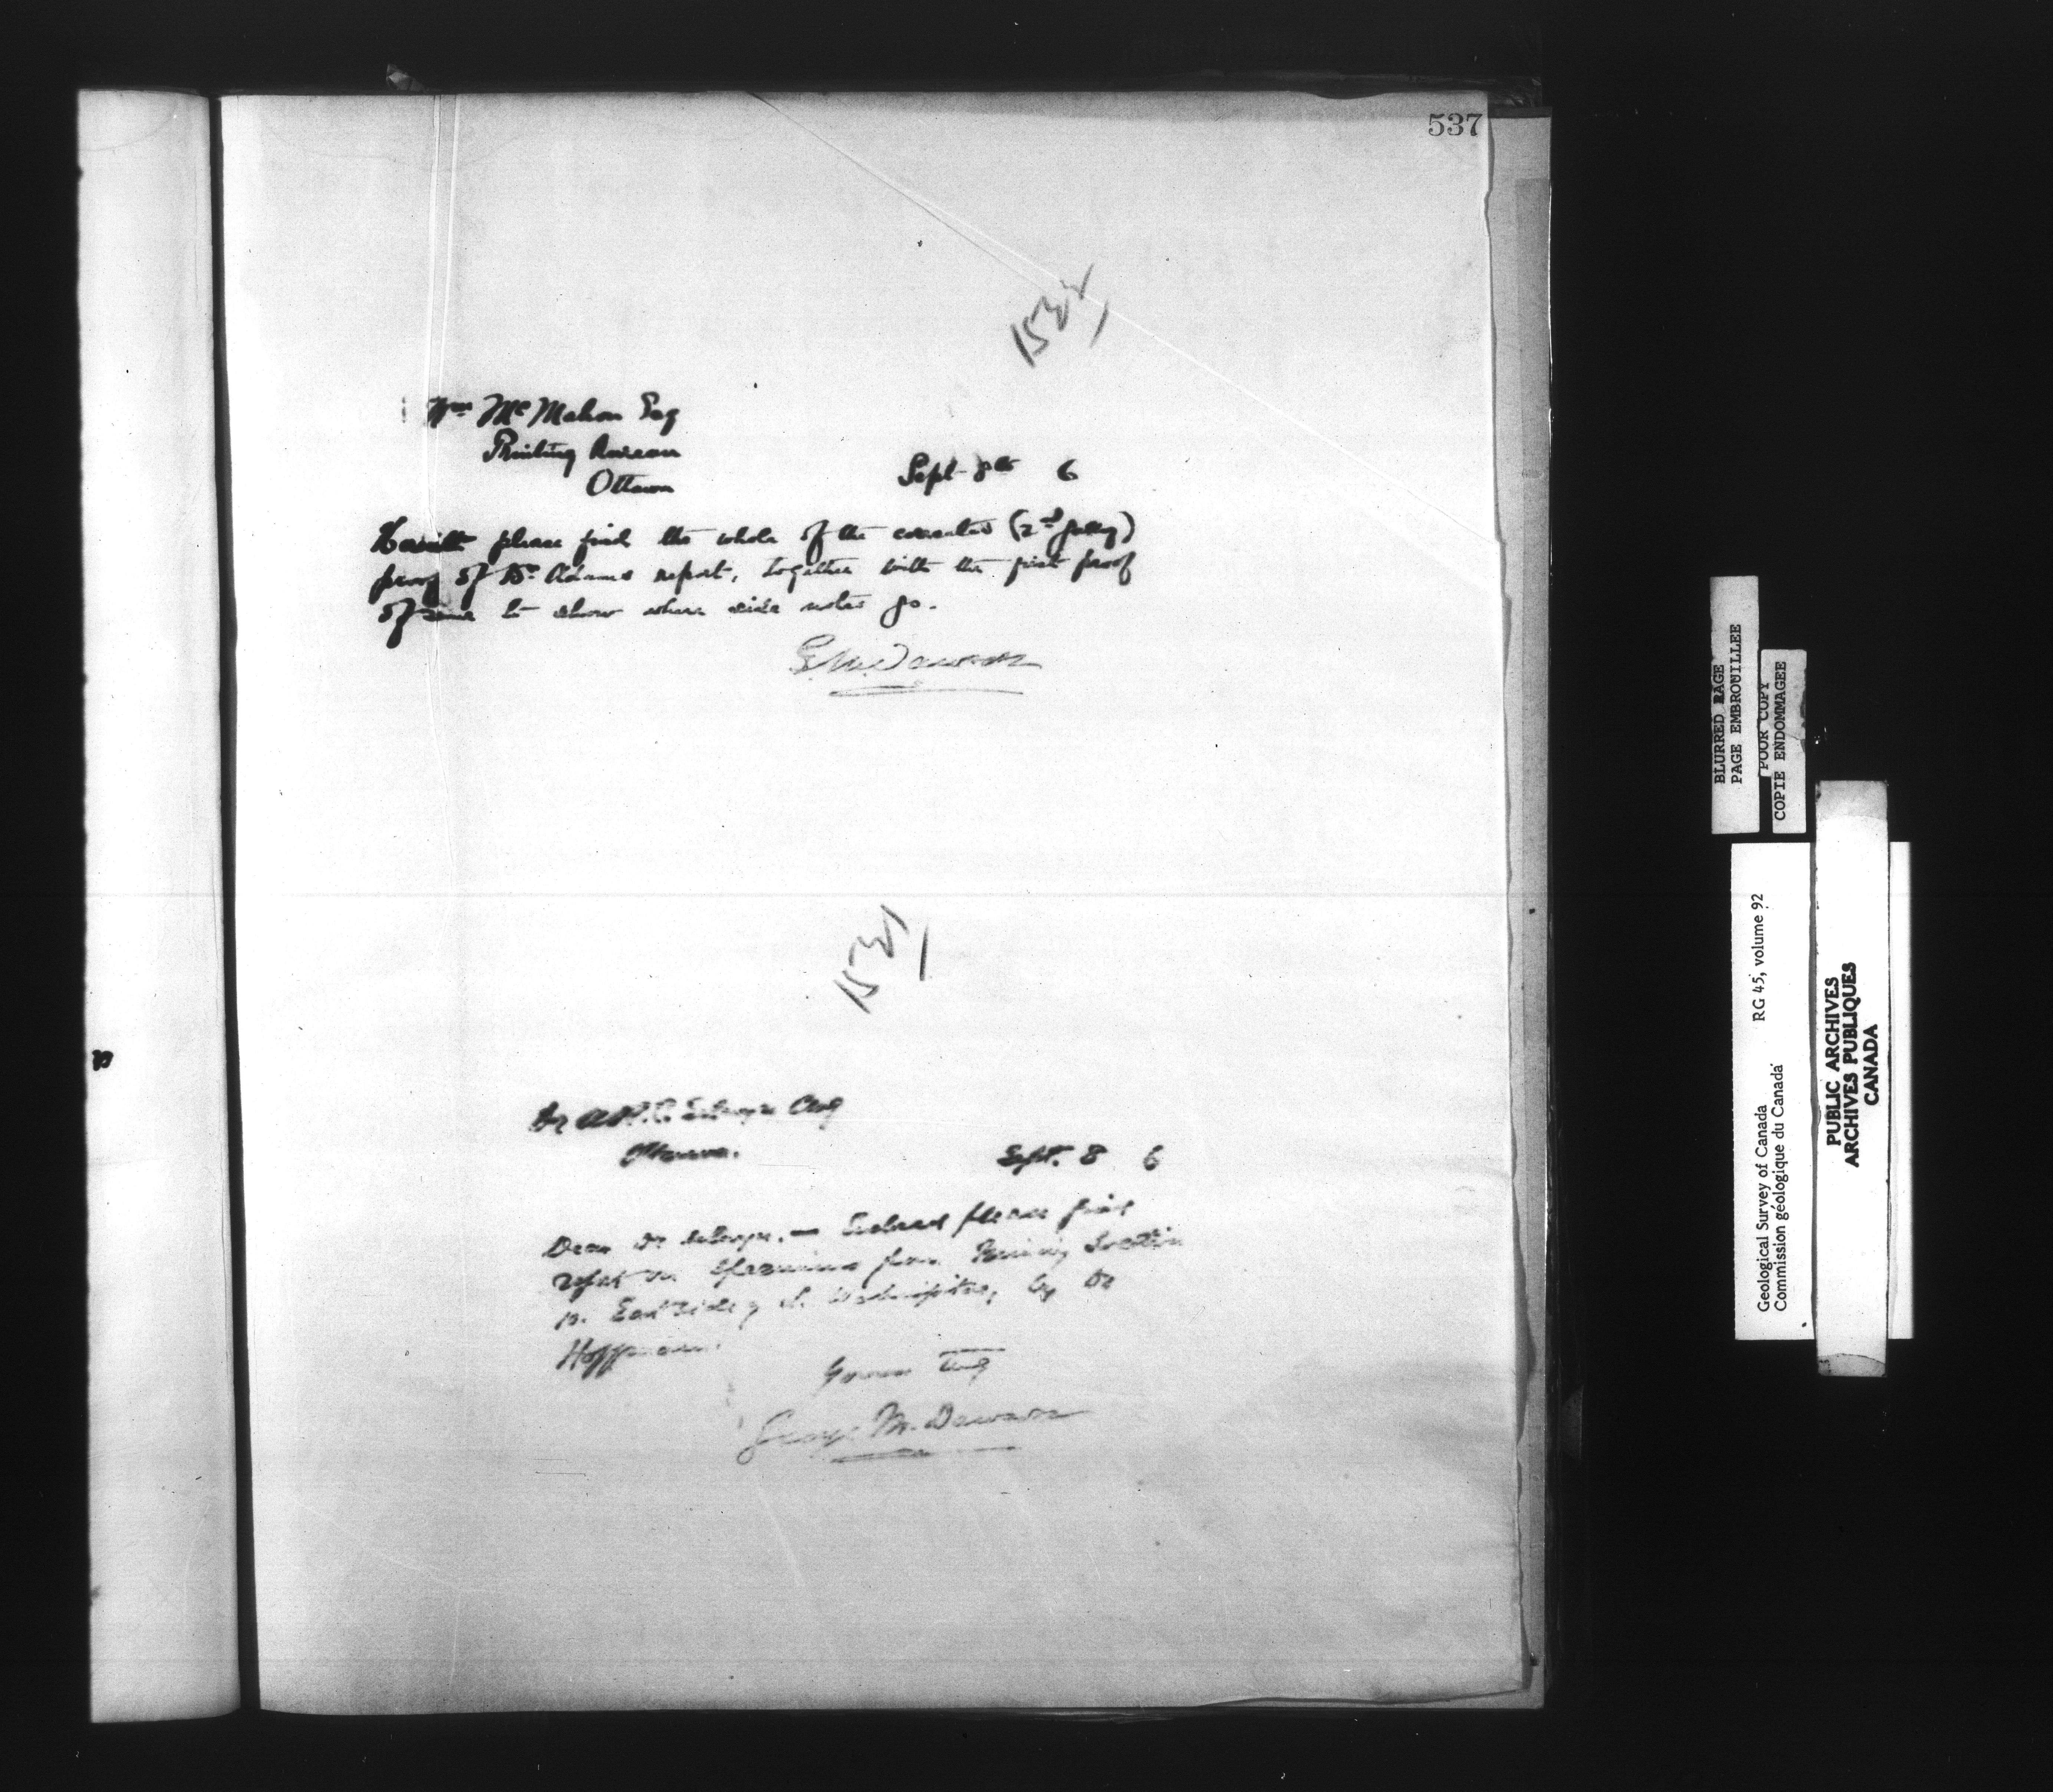 537
Wm McMahon Esq
Printing Bureau
Ottawa
Sept 8th 6
Herewith please find the whole of the corrected (2nd galley)
proof of Dr. Adams report, together with the first proof
of same to show where side notes go.
G.M. Dawson
Dr A.R.C. Selwyn CMG
Ottawa.
Sept. 8 6
Dear Dr Selwyn. — Enclosed please find
report on specimens from Mining Location
on East side of L. Wahnapitae, by Dr
Hoffmann.
Yours truly
George M. Dawson
BLURRED PAGE
PAGE EMBROUILLEE
POOR COPY
COPIE ENDOMMAGEE
Geological Survey of Canada RG 45, volume 92
Commission géologique du Canada
PUBLIC ARCHIVES
ARCHIVES PUBLIQUES
CANADA